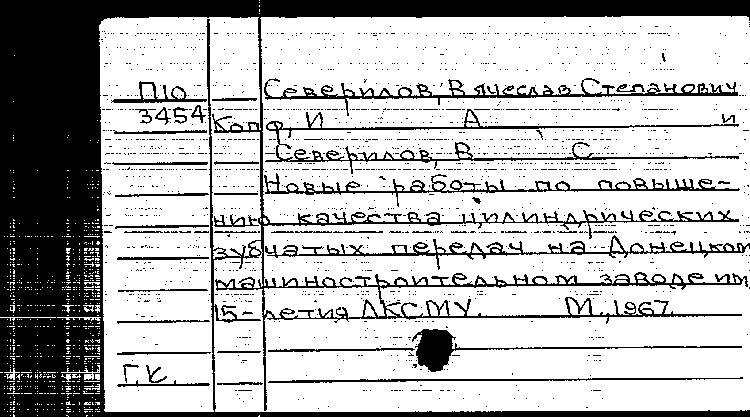 П10 Северилов, Вячеслав Степанович
3454 Копф, И А и
Северилов, В С
Новые работы по повыше-
нию качества цилиндрических
зубчатых передач на Донецком
машиностроительном заводе им
15-летия ЛКСМУ. М., 1967
Г.К.